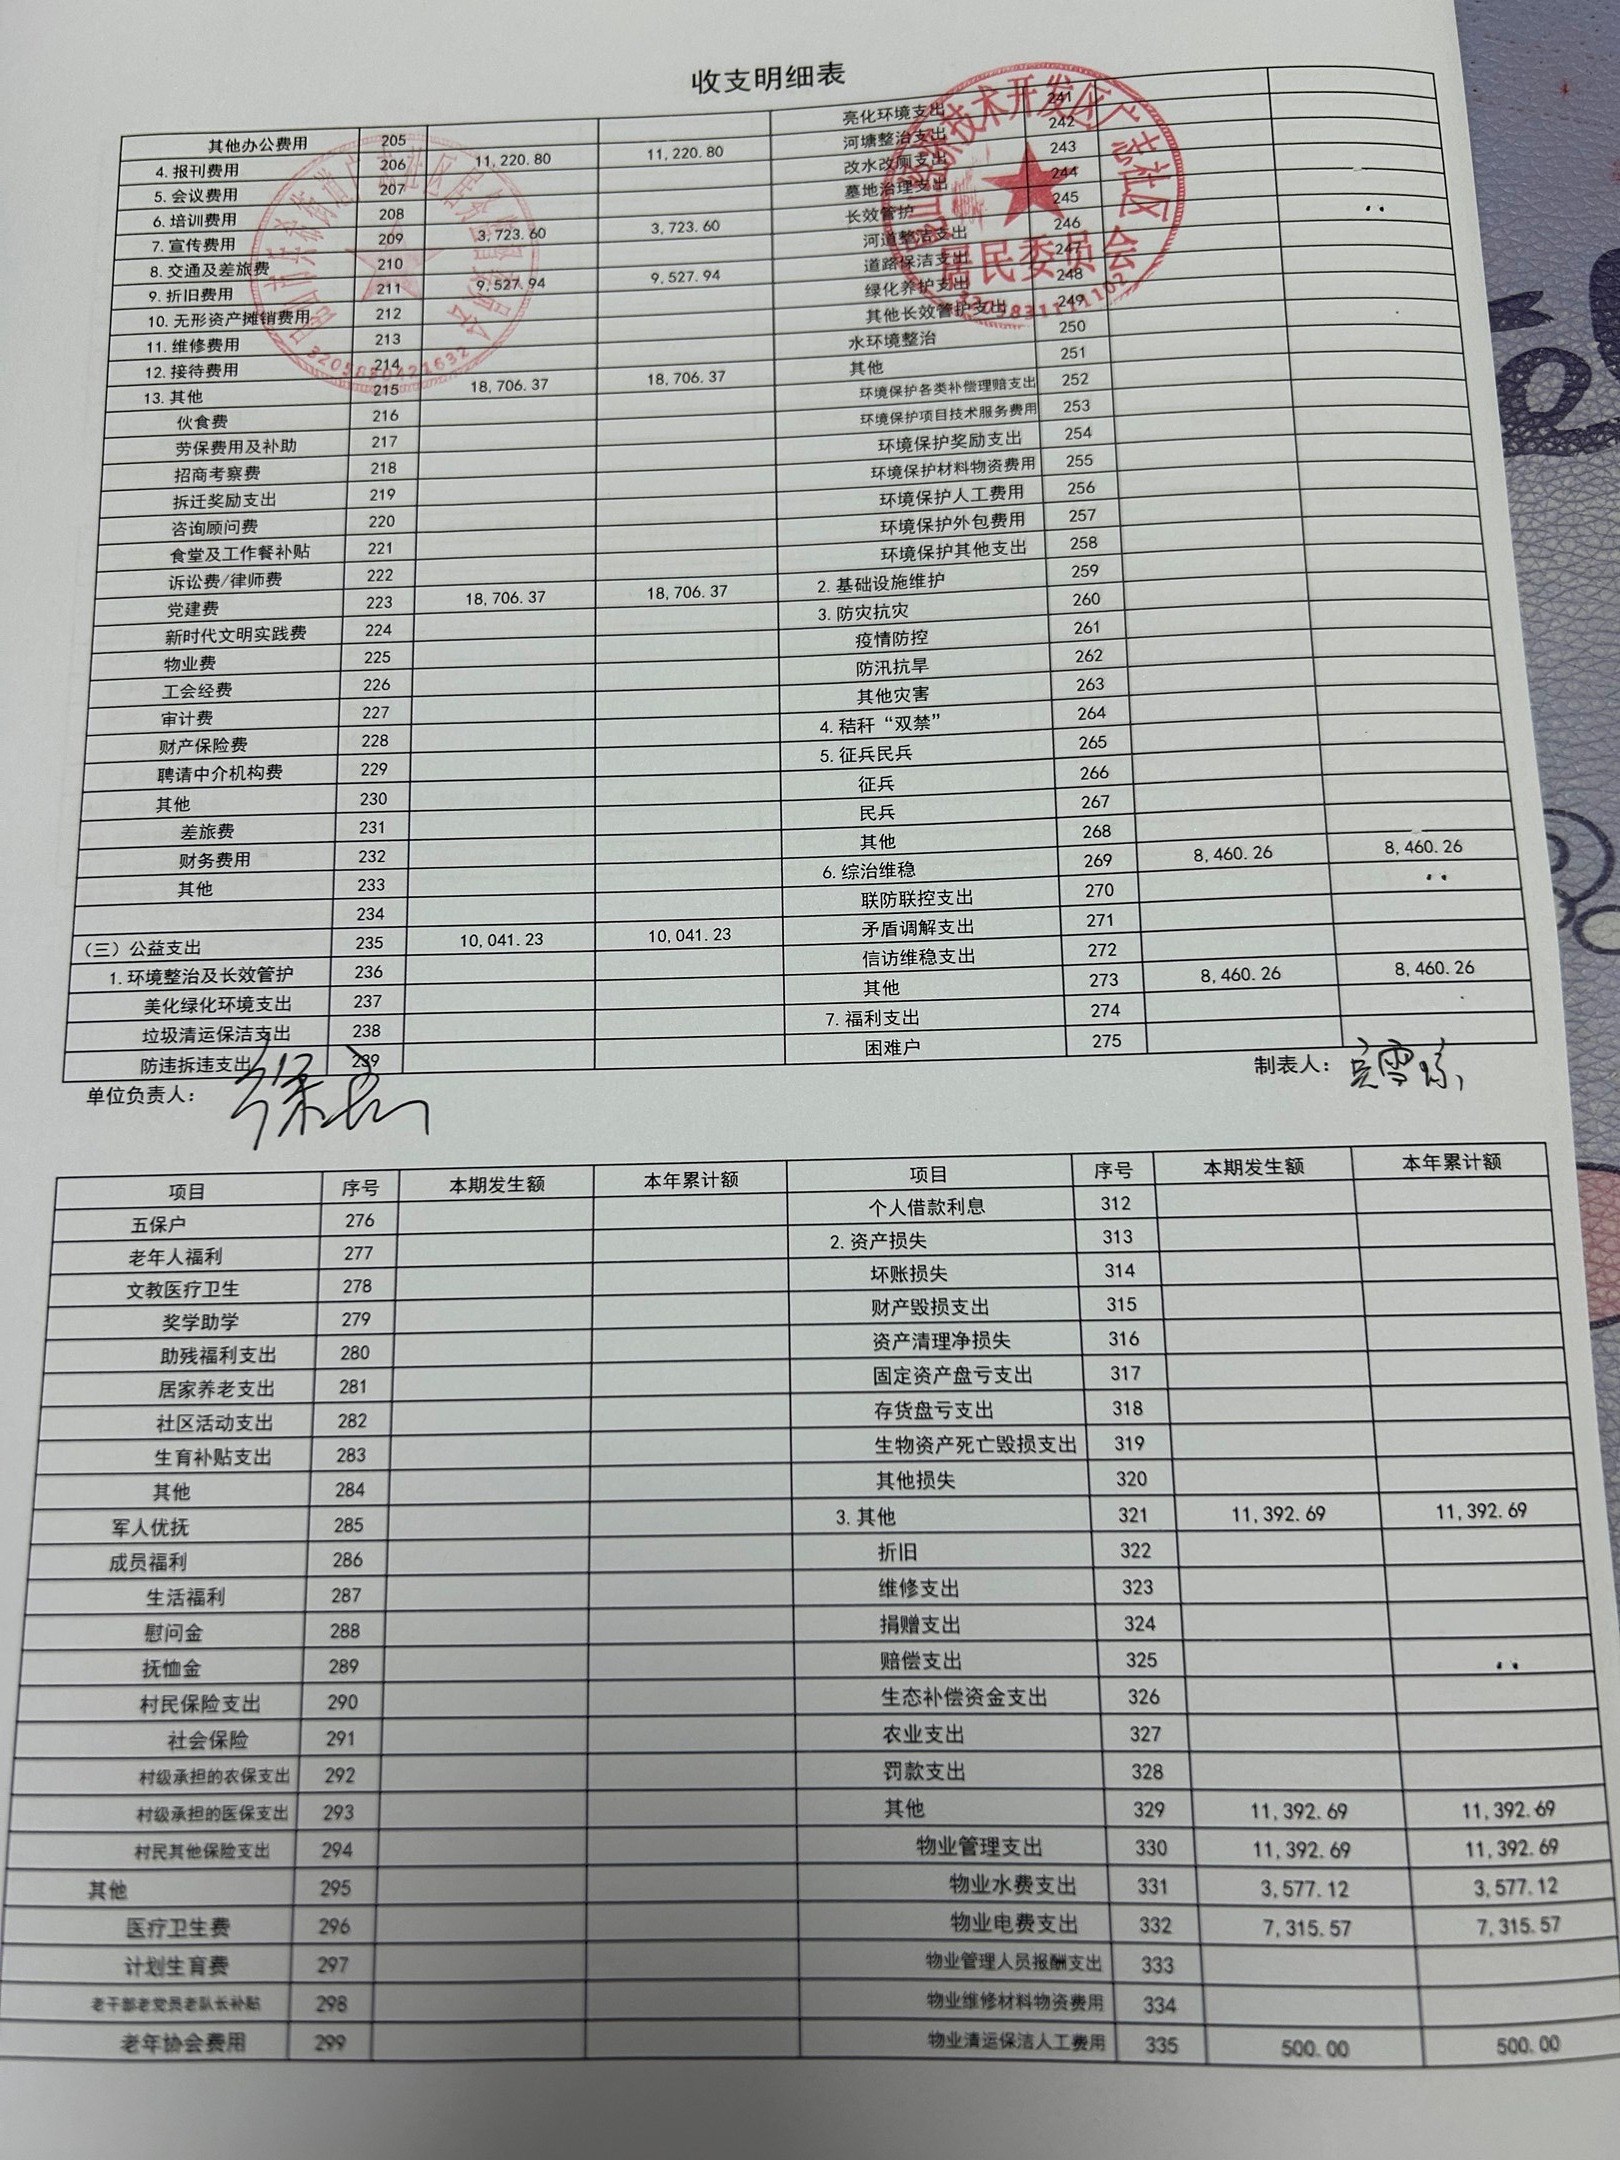 收支明细表
其他办公费用 205 亮化环境支出 241
4. 报刊费用 206 11,220.80 11,220.80 河塘整治支出 242
5. 会议费用 207 改水改厕支出 243
6. 培训费用 208 墓地治理支出 244
7. 宣传费用 209 3,723.60 3,723.60 长效管护 245
8. 交通及差旅费 210 河道整洁支出 246
9. 折旧费用 211 9,527.94 9,527.94 道路保洁支出 247
10. 无形资产摊销费用 212 绿化养护支出 248
11. 维修费用 213 其他长效管护支出 249
12. 接待费用 214 水环境整治 250
13. 其他 215 18,706.37 18,706.37 其他 251
伙食费 216 环境保护各类补偿理赔支出 252
劳保费用及补助 217 环境保护项目技术服务费用 253
招商考察费 218 环境保护奖励支出 254
拆迁奖励支出 219 环境保护材料物资费用 255
咨询顾问费 220 环境保护人工费用 256
食堂及工作餐补贴 221 环境保护外包费用 257
诉讼费/律师费 222 环境保护其他支出 258
党建费 223 18,706.37 18,706.37 2. 基础设施维护 259
新时代文明实践费 224 3. 防灾抗灾 260
物业费 225 疫情防控 261
工会经费 226 防汛抗旱 262
审计费 227 其他灾害 263
财产保险费 228 4. 秸秆“双禁” 264
聘请中介机构费 229 5. 征兵民兵 265
其他 230 征兵 266
差旅费 231 民兵 267
财务费用 232 其他 268
其他 233 6. 综治维稳 269 8,460.26 8,460.26
234 联防联控支出 270
(三)公益支出 235 10,041.23 10,041.23 矛盾调解支出 271
1. 环境整治及长效管护 236 信访维稳支出 272
美化绿化环境支出 237 其他 273 8,460.26 8,460.26
垃圾清运保洁支出 238 7. 福利支出 274
防违拆违支出 239 困难户 275
居民委员会
单位负责人： 制表人：
项目 序号 本期发生额 本年累计额 项目 序号 本期发生额 本年累计额
五保户 276 个人借款利息 312
老年人福利 277 2. 资产损失 313
文教医疗卫生 278 坏账损失 314
奖学助学 279 财产毁损支出 315
助残福利支出 280 资产清理净损失 316
居家养老支出 281 固定资产盘亏支出 317
社区活动支出 282 存货盘亏支出 318
生育补贴支出 283 生物资产死亡毁损支出 319
其他 284 其他损失 320
军人优抚 285 3. 其他 321 11,392.69 11,392.69
成员福利 286 折旧 322
生活福利 287 维修支出 323
慰问金 288 捐赠支出 324
抚恤金 289 赔偿支出 325
村民保险支出 290 生态补偿资金支出 326
社会保险 291 农业支出 327
村级承担的农保支出 292 罚款支出 328
村级承担的医保支出 293 其他 329 11,392.69 11,392.69
村民其他保险支出 294 物业管理支出 330 11,392.69 11,392.69
其他 295 物业水费支出 331 3,577.12 3,577.12
医疗卫生费 296 物业电费支出 332 7,315.57 7,315.57
计划生育费 297 物业管理人员报酬支出 333
老干部老党员老队长补贴 298 物业维修材料物资费用 334
老年协会费用 299 物业清运保洁人工费用 335 500.00 500.00